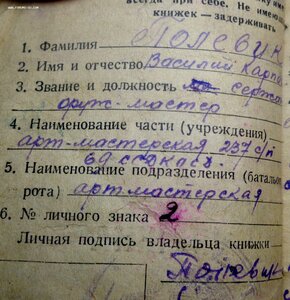 всегда при себе. Не имею
книжек — задерживать
1. Фамилия Полевик
2. Имя и отчество Василий Карпо
3. Звание и должность сержан
оруж-мастер
4. Наименование части (учреждения)
арт-мастерская 237 с/п
69 сд
5. Наименование подразделения (батальон
рота) артмастерская
6. № личного знака 2
Личная подпись владельца книжки